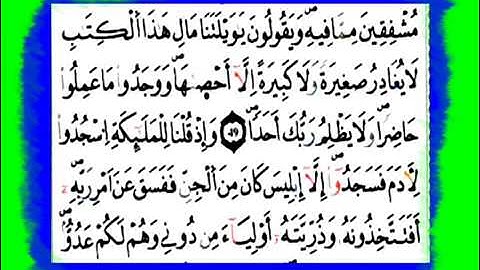 مُشْفِقِينَ مِمَّا فِيهِ وَيَقُولُونَ يَٰوَيْلَتَنَا مَالِ هَٰذَا ٱلْكِتَٰبِ
لَا يُغَادِرُ صَغِيرَةً وَلَا كَبِيرَةً إِلَّآ أَحْصَىٰهَا وَوَجَدُوا۟ مَا عَمِلُوا۟
حَاضِرًا وَلَا يَظْلِمُ رَبُّكَ أَحَدًا ٤٩ وَإِذْ قُلْنَا لِلْمَلَٰٓئِكَةِ ٱسْجُدُوا۟
لِأٓدَمَ فَسَجَدُوٓا۟ إِلَّآ إِبْلِيسَ كَانَ مِنَ ٱلْجِنِّ فَفَسَقَ عَنْ أَمْرِ رَبِّهِۦٓ
أَفَتَتَّخِذُونَهُۥ وَذُرِّيَّتَهُۥٓ أَوْلِيَآءَ مِن دُونِى وَهُمْ لَكُمْ عَدُوٌّ